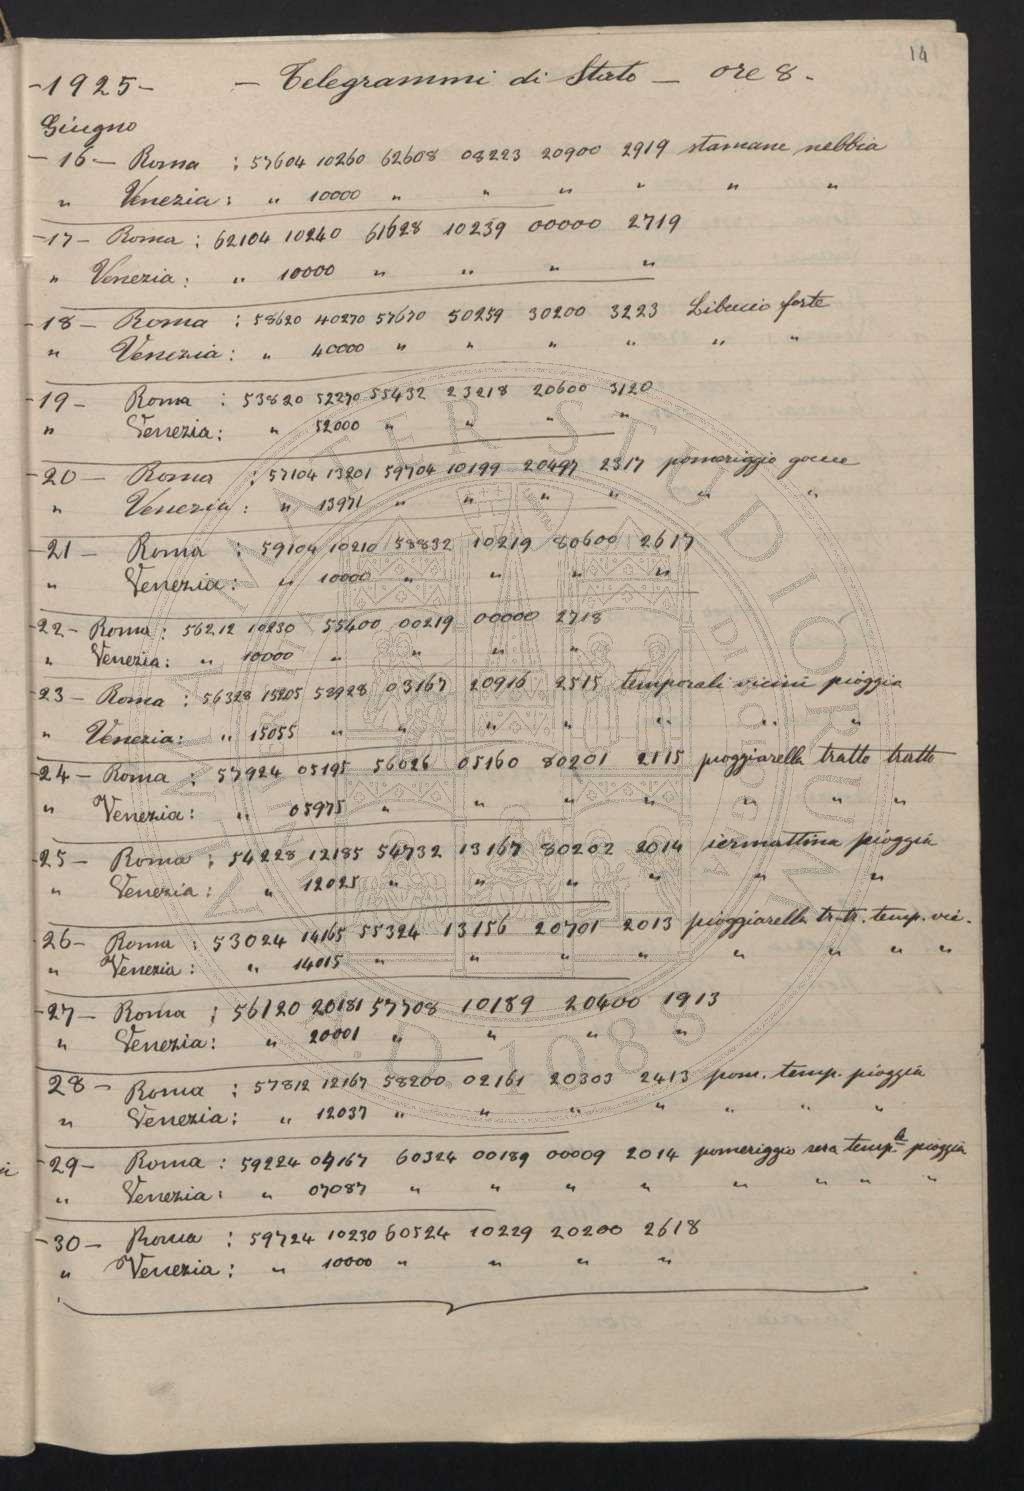 14
-1925- - Telegrammi di Stato - ore 8.
Giugno
- 16 - Roma : 57604 10260 62608 08223 20900 2919 stamane nebbia
" Venezia : " 10000 " " " " " "
-17- Roma : 62104 10240 61628 10239 00000 2719
" Venezia : " 10000 " " " "
-18- Roma : 58620 40270 57670 50259 30200 3223 Libeccio forte
" Venezia : " 40000 " " " " " "
-19- Roma : 53820 52270 55432 23218 20600 3120
" Venezia : " 52000 " " " "
-20- Roma : 57104 13201 59704 10199 20497 2317 pomeriggio gocce
" Venezia : " 13971 " " " " " "
-21- Roma : 59104 10210 58832 10219 80600 2617
" Venezia : " 10000 " " " "
-22- Roma : 56212 10230 55400 00219 00000 2718
" Venezia : " 10000 " " " "
-23- Roma : 56328 15205 58928 03167 20916 2515 temporali vicini pioggia
" Venezia : " 15055 " " " " " " "
-24- Roma : 57924 05195 56026 05160 80201 2115 pioggiarella tratto tratto
" Venezia : " 05975 " " " " " " "
-25- Roma : 54228 12185 54732 13167 80202 2014 iermattina pioggia
" Venezia : " 12025 " " " " " "
-26- Roma : 53024 14165 55324 13156 20701 2013 pioggiarella tr-tr. temp. vic.
" Venezia : " 14015 " " " " " " "
-27- Roma : 56120 20181 57708 10189 20400 1913
" Venezia : " 20001 " " " "
28- Roma : 57812 12167 58200 02161 20303 2413 pom. temp. pioggia
" Venezia : " 12037 " " " " " " "
-29- Roma : 59224 07167 60324 00189 00009 2014 pomeriggio sera temp.le pioggia
" Venezia : " 07087 " " " " " " " "
-30- Roma : 59724 10230 60524 10229 20200 2618
" Venezia : " 10000 " " " "
ALMA MATER STUDIORUM
A.D. 1088